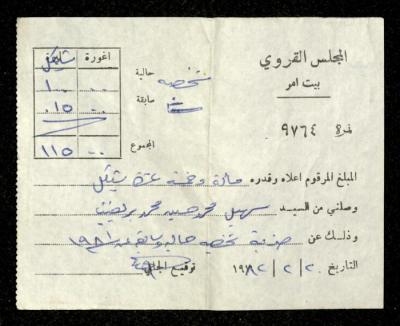 المجلس القروي
بيت امر
نمرة ٩٧٦٤
اغورة شيكل
حالية .. ١٠٠
سابقة .. ١٥
المجموع .. ١١٥
المبلغ المرقوم اعلاه وقدره مائة وخمسة عشر شيكل
وصلني من السيد سهيل محمد حسين محمد
وذلك عن ضريبة شخصية حاليه وسابقه ١٩٨١
التاريخ ٢٠ / ٢ / ١٩٨٢ توقيع الجابي